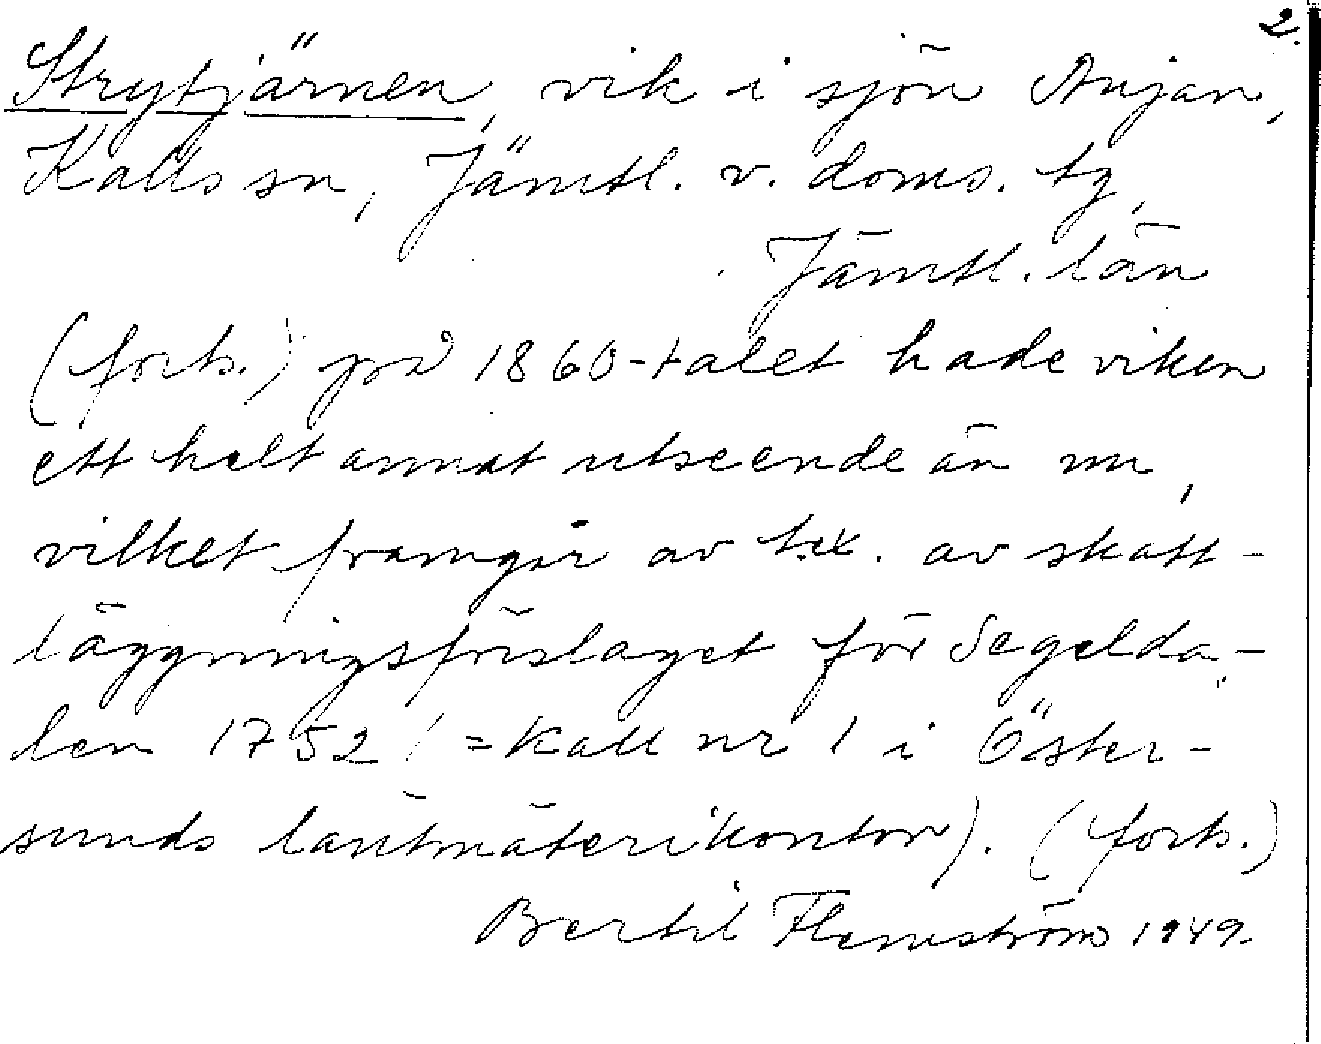 2.
Strytjärnen, vik i sjön Anjan,
Kalls sn, Jämtl. v. doms. tg,
Jämtl. län
(forts.) på 1860-talet hade viken
ett helt annat utseende än nu,
vilket framgår av t.ex. av skatt-
läggningsförslaget för Segelda-
len 1752 (=Kall nr 1 i Öster-
sunds lantmäterikontor). (forts.)
Bertil Flemström 1949.